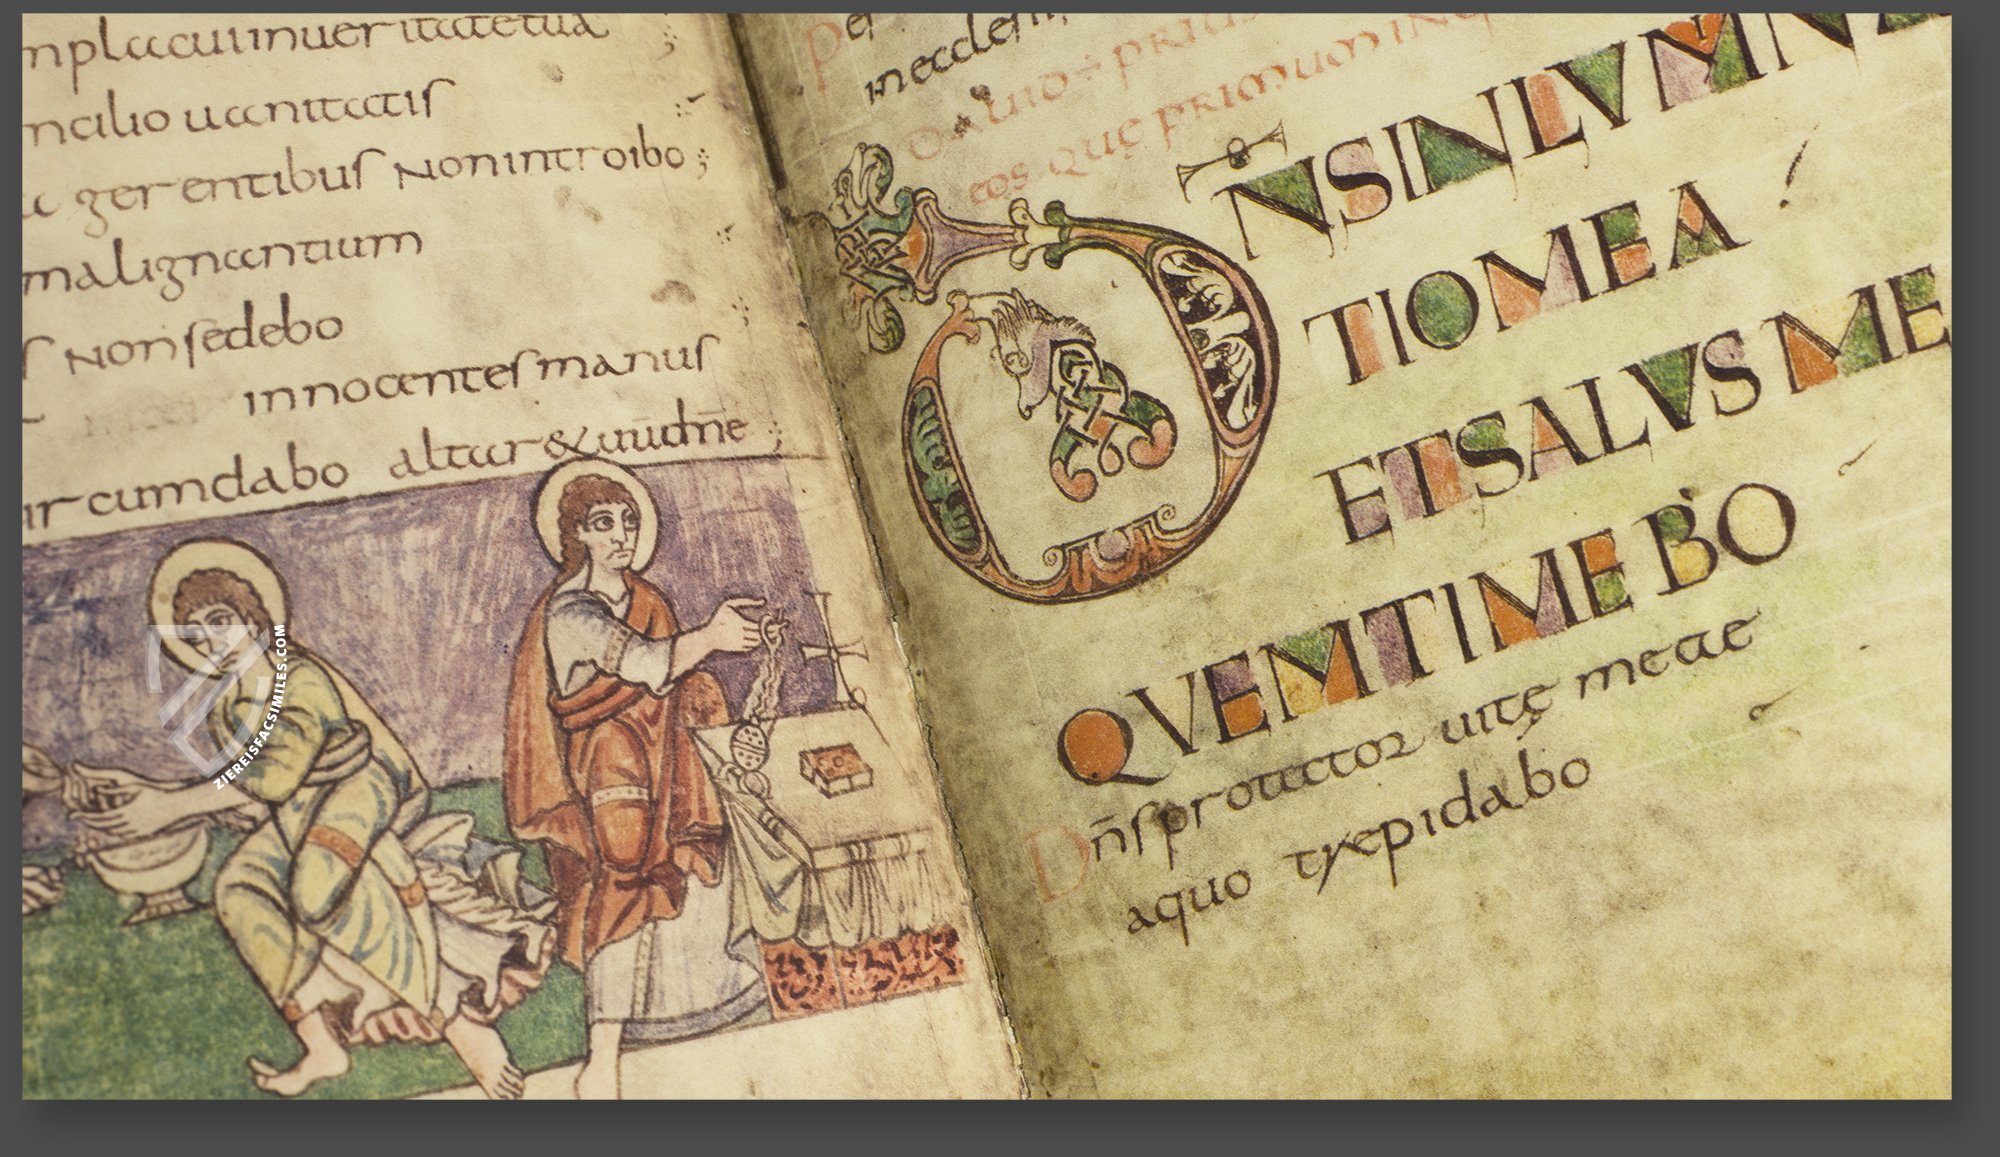 mplacui in ueritate tua
ncilio uanitatis
gerentibus non introibo;
malignantium
s non sedebo
innocentes manus
ircumdabo altar & uūdn̄e;
in eccles
eos quę primum in
DN̄S INLVMIN
TIO MEA
ET SALVS ME
QVEM TIMEBO
Dn̄s protector uitę meae
a quo trepidabo
ZIEREISFACSIMILES.COM